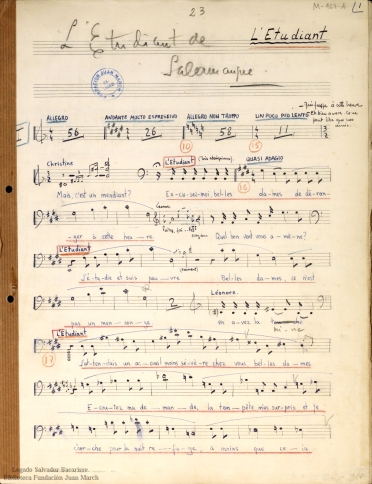 23
M-127-A
L'Etudiant de
Salamanque.
L'Etudiant
1
ALLEGRO
ANDANTE MOLTO ESPRESSIVO
ALLEGRO NON TROPPO
UN POCO PIÙ LENTO
I
56
26
58
11
10
15
Christine
L'Etudiant
QUASI ADAGIO
16
Mais, c'est un mendiant?
Ex-cu-sez-moi bel-les da-mes de dé-ran-
-ger à cette heu-re
Quel bon vent vous a-mène?
L'Etudiant
J'é-tu-die et suis pau-vre Bel-les da-mes, ce n'est
Léonore.
pas un men-son-ge
en a-vez la
mi-ne
L'Etudiant
17
J'at-ten-dais un ac-cueil moins sé-vè-re chez vous bel-les da-mes
E-cou-tez ma de-man-de, la tem-pête m'a surpris et je
cher-che pour la nuit re-fu-ge, à moins que ce-la
Legado Salvador Bacarisse
Biblioteca Fundación Juan March